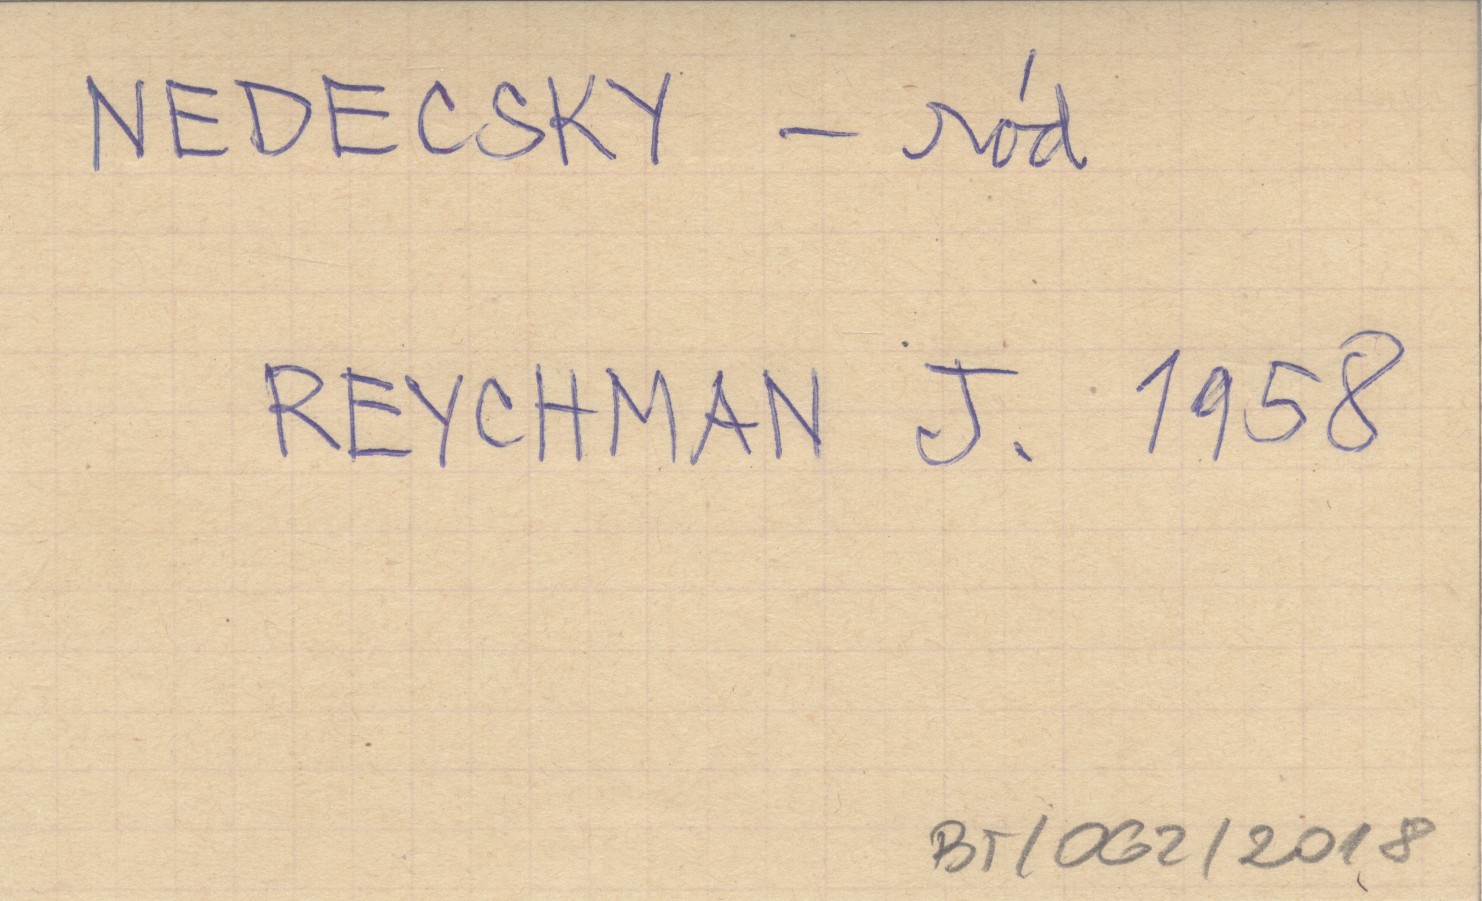 NEDECSKY – ród
REYCHMAN J. 1958
BT/OG2/2018